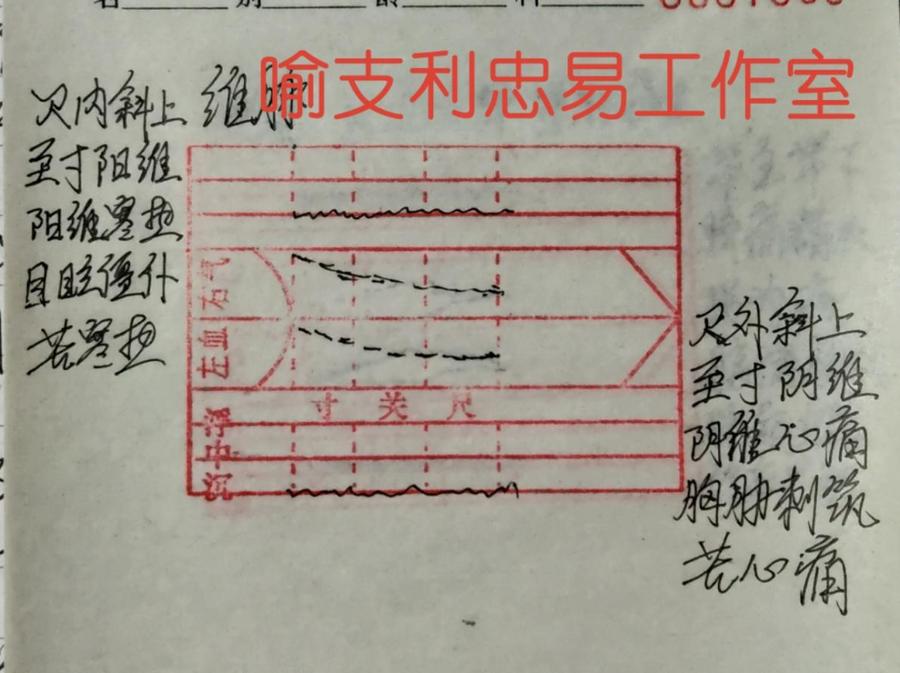 喻支利忠易工作室
维脉
尺内斜上
至寸阳维
阳维寒热
目眩僵仆
苦寒热
右气
左血
寸 关 尺
浮
中
沉
尺外斜上
至寸阴维
阴维心痛
胸胁刺筑
苦心痛